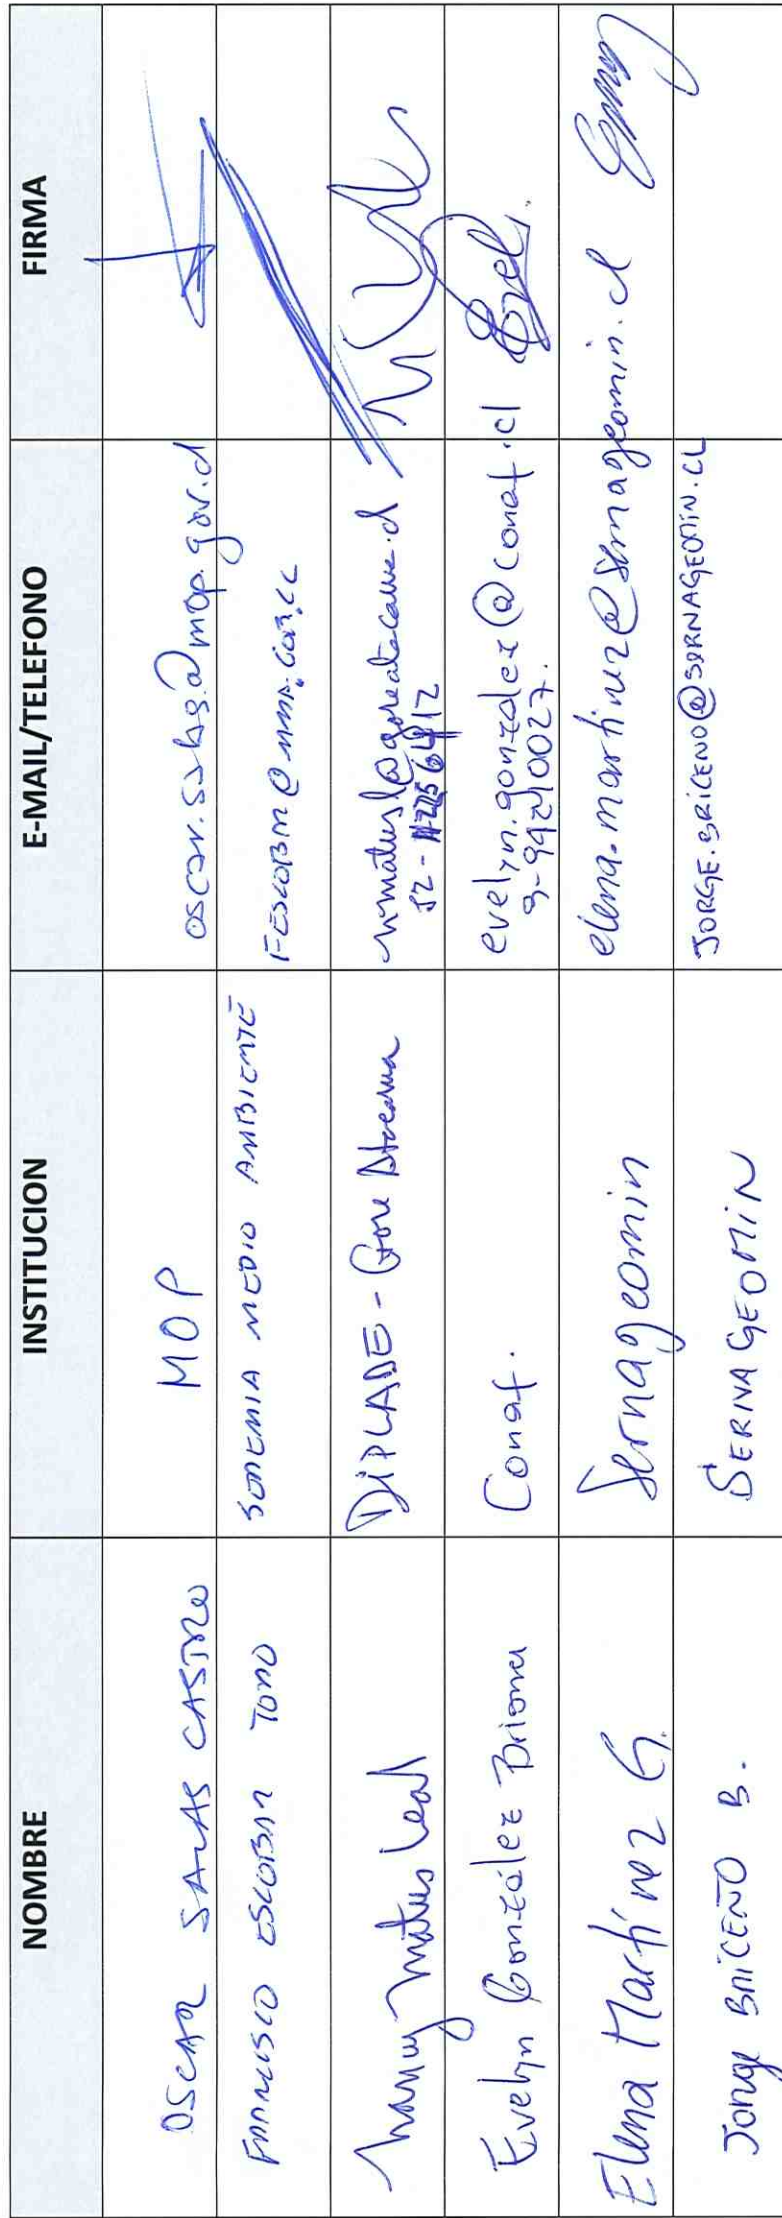 NOMBRE INSTITUCION E-MAIL/TELEFONO FIRMA
OSCAR SALAS CASTRO MOP oscar.salas@mop.gov.cl
FRANCISCO ESCOBAR TORO SEREMIA MEDIO AMBIENTE FESCOBAR@MMA.GOB.CL
Nancy Matus Leal DIPLADE - Gore Atacama nmatusl@goreatacama.cl
52-
Evelyn González Briones Conaf. evelyn.gonzalez@conaf.cl
Elena Martínez G. Sernageomin elena.martinez@sernageomin.cl
Jorge BRICEÑO B. SERNAGEOMIN JORGE.BRICENO@SERNAGEOMIN.CL